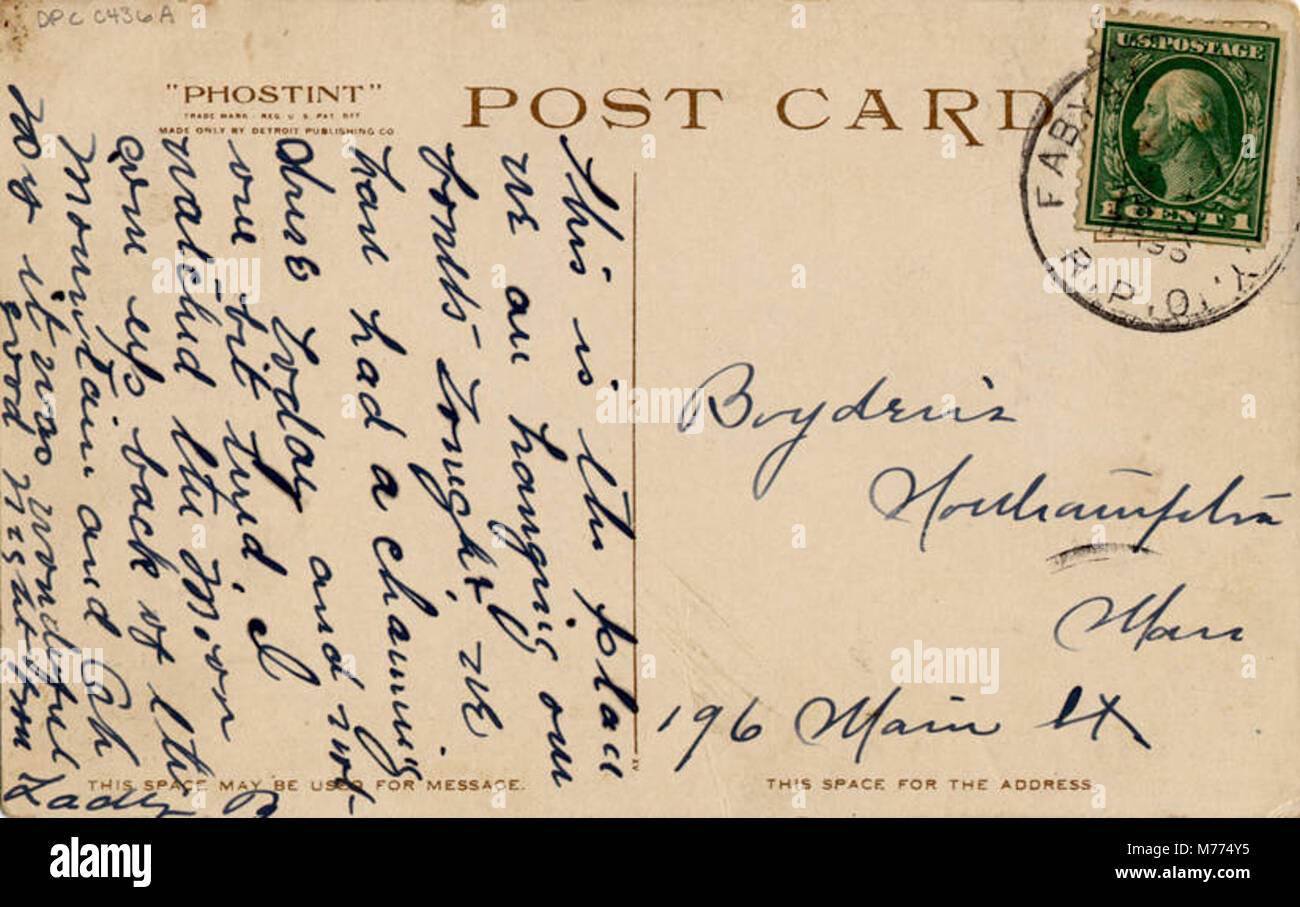 DPC C436A
"PHOSTINT"
TRADE MARK - REG. U.S. PAT. OFF
MADE ONLY BY DETROIT PUBLISHING CO
POST CARD
U.S. POSTAGE
1 CENT 1
FABYAN
R.P.O.
This is the place
we are hanging our
bonnets tonight, we
have had a charming
drive today and not
one bit tired, I
watched the moon
come up back of the
Mountain and Oh
how it was wonderful
good night from
Lady B
Boyden's
Northampton
Mass
196 Main St
THIS SPACE MAY BE USED FOR MESSAGE.
THIS SPACE FOR THE ADDRESS
alamy
alamy
alamy
Image ID: M774Y5
www.alamy.com